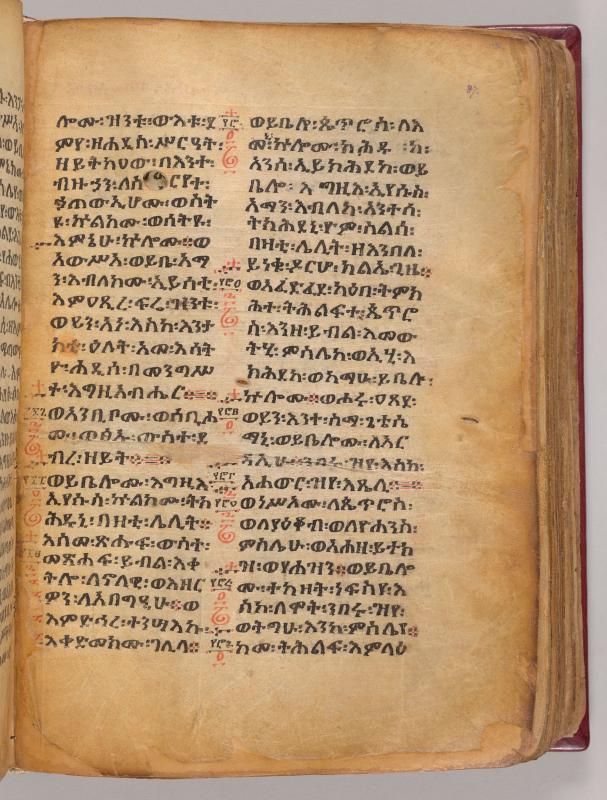 ሎሙ፡ዝንቱ፡ውእቱ፡ደ
ምየ፡ዘሐዲስ፡ሥርዓት፡
ዘይትከዐው፡በእንተ፡
ብዙኃን፡
ኃጠውኢሆሙ፡ወስት
ዩ፡ኵልክሙ፡ወሰትዩ፡
እምኔሁ፡ኵሎሙ።ወ
አውሥአ፡ወይቤ፡አማ
ን፡እብለክሙ፡ኢይሰቲ፡
እምዐጺረ፡ፍሬ፡ዝንቱ፡
ወይን፡እነ፡እስከ፡እንተ
ክቲ፡ዕለት፡አመ፡እሰት
ዮ፡ሐዲሰ፡በመንግሥ
ተ፡እግዚአብሔር።
ወእንቢቦሙ፡ወሰቢሖ
ሙ፡ወፅኡ፡ውስተ፡ደ
ብረ፡ዘይት።
ወይቤሎሙ፡እግዚእ
ኢየሱስ፡ኵልክሙ፡ትክ
ሕዱኒ፡በዛቲ፡ሌሊት።
እስመ፡ጽሑፍ፡ውስተ፡
መጽሐፍ፡ይብል፡እቀ
ትሎ፡ለኖላዊ፡ወእዘር
ዎን፡ለአባግዒሁ።ወ
እምድኅረ፡ተንሣእኩ፡
እቀድመክሙ፡ገሊላ።
ወይቤሎ፡ጴጥሮስ፡ለእ
መ፡ኵሎሙ፡ክሕዱ፡ከ፡
አንሰ፡ኢይክሕደከ፡ወይ
ቤሎ፡እግዚእ፡ኢየሱስ፡
አማን፡እብለከ፡አንተሰ፡
ትክሕደኒ፡ዮም፡ስልሰ፡
በዛቲ፡ሌሊት፡ዘእንበለ፡
ይንቁ፡ዶርሆ፡ክልኤ፡ጊዜ።
ወአፈድፈደ፡ካዕበ፡ትምክ
ሕተ፡ትሕልፍተ፡ጴጥሮ
ስ፡እንዘ፡ይብል፡እመው
ትሂ፡ምስሌከ፡ወኢሂ፡እ
ክሕደከ፡ወከማሁ፡ይቤሉ፡
ኵሎሙ።ወሖሩ፡ዐጸደ፡
ወይን፡እንተ፡ስማ፡ጌቴሴ
ማኒ፡ወይቤሎሙ፡ለአር
ዳኢሁ፡ንበሩ፡ዝየ፡እስከ፡
አሐውር፡ዝየ፡እጼሊ።
ወነሥአሙ፡ለጴጥሮስ፡
ወለያዕቆብ፡ወለዮሐንስ፡
ምስሌሁ፡ወአኀዘ፡ይተክ
ዝ፡ወየሐዝን።ወይቤሎ
ሙ፡ተከዘት፡ነፍስየ፡እ
ስከ፡ለሞት፡ንበሩ፡ዝየ፡
ወትግሁ፡እንከ፡ምስሌየ።
ከመ፡ትሕልፍ፡እምላዕ